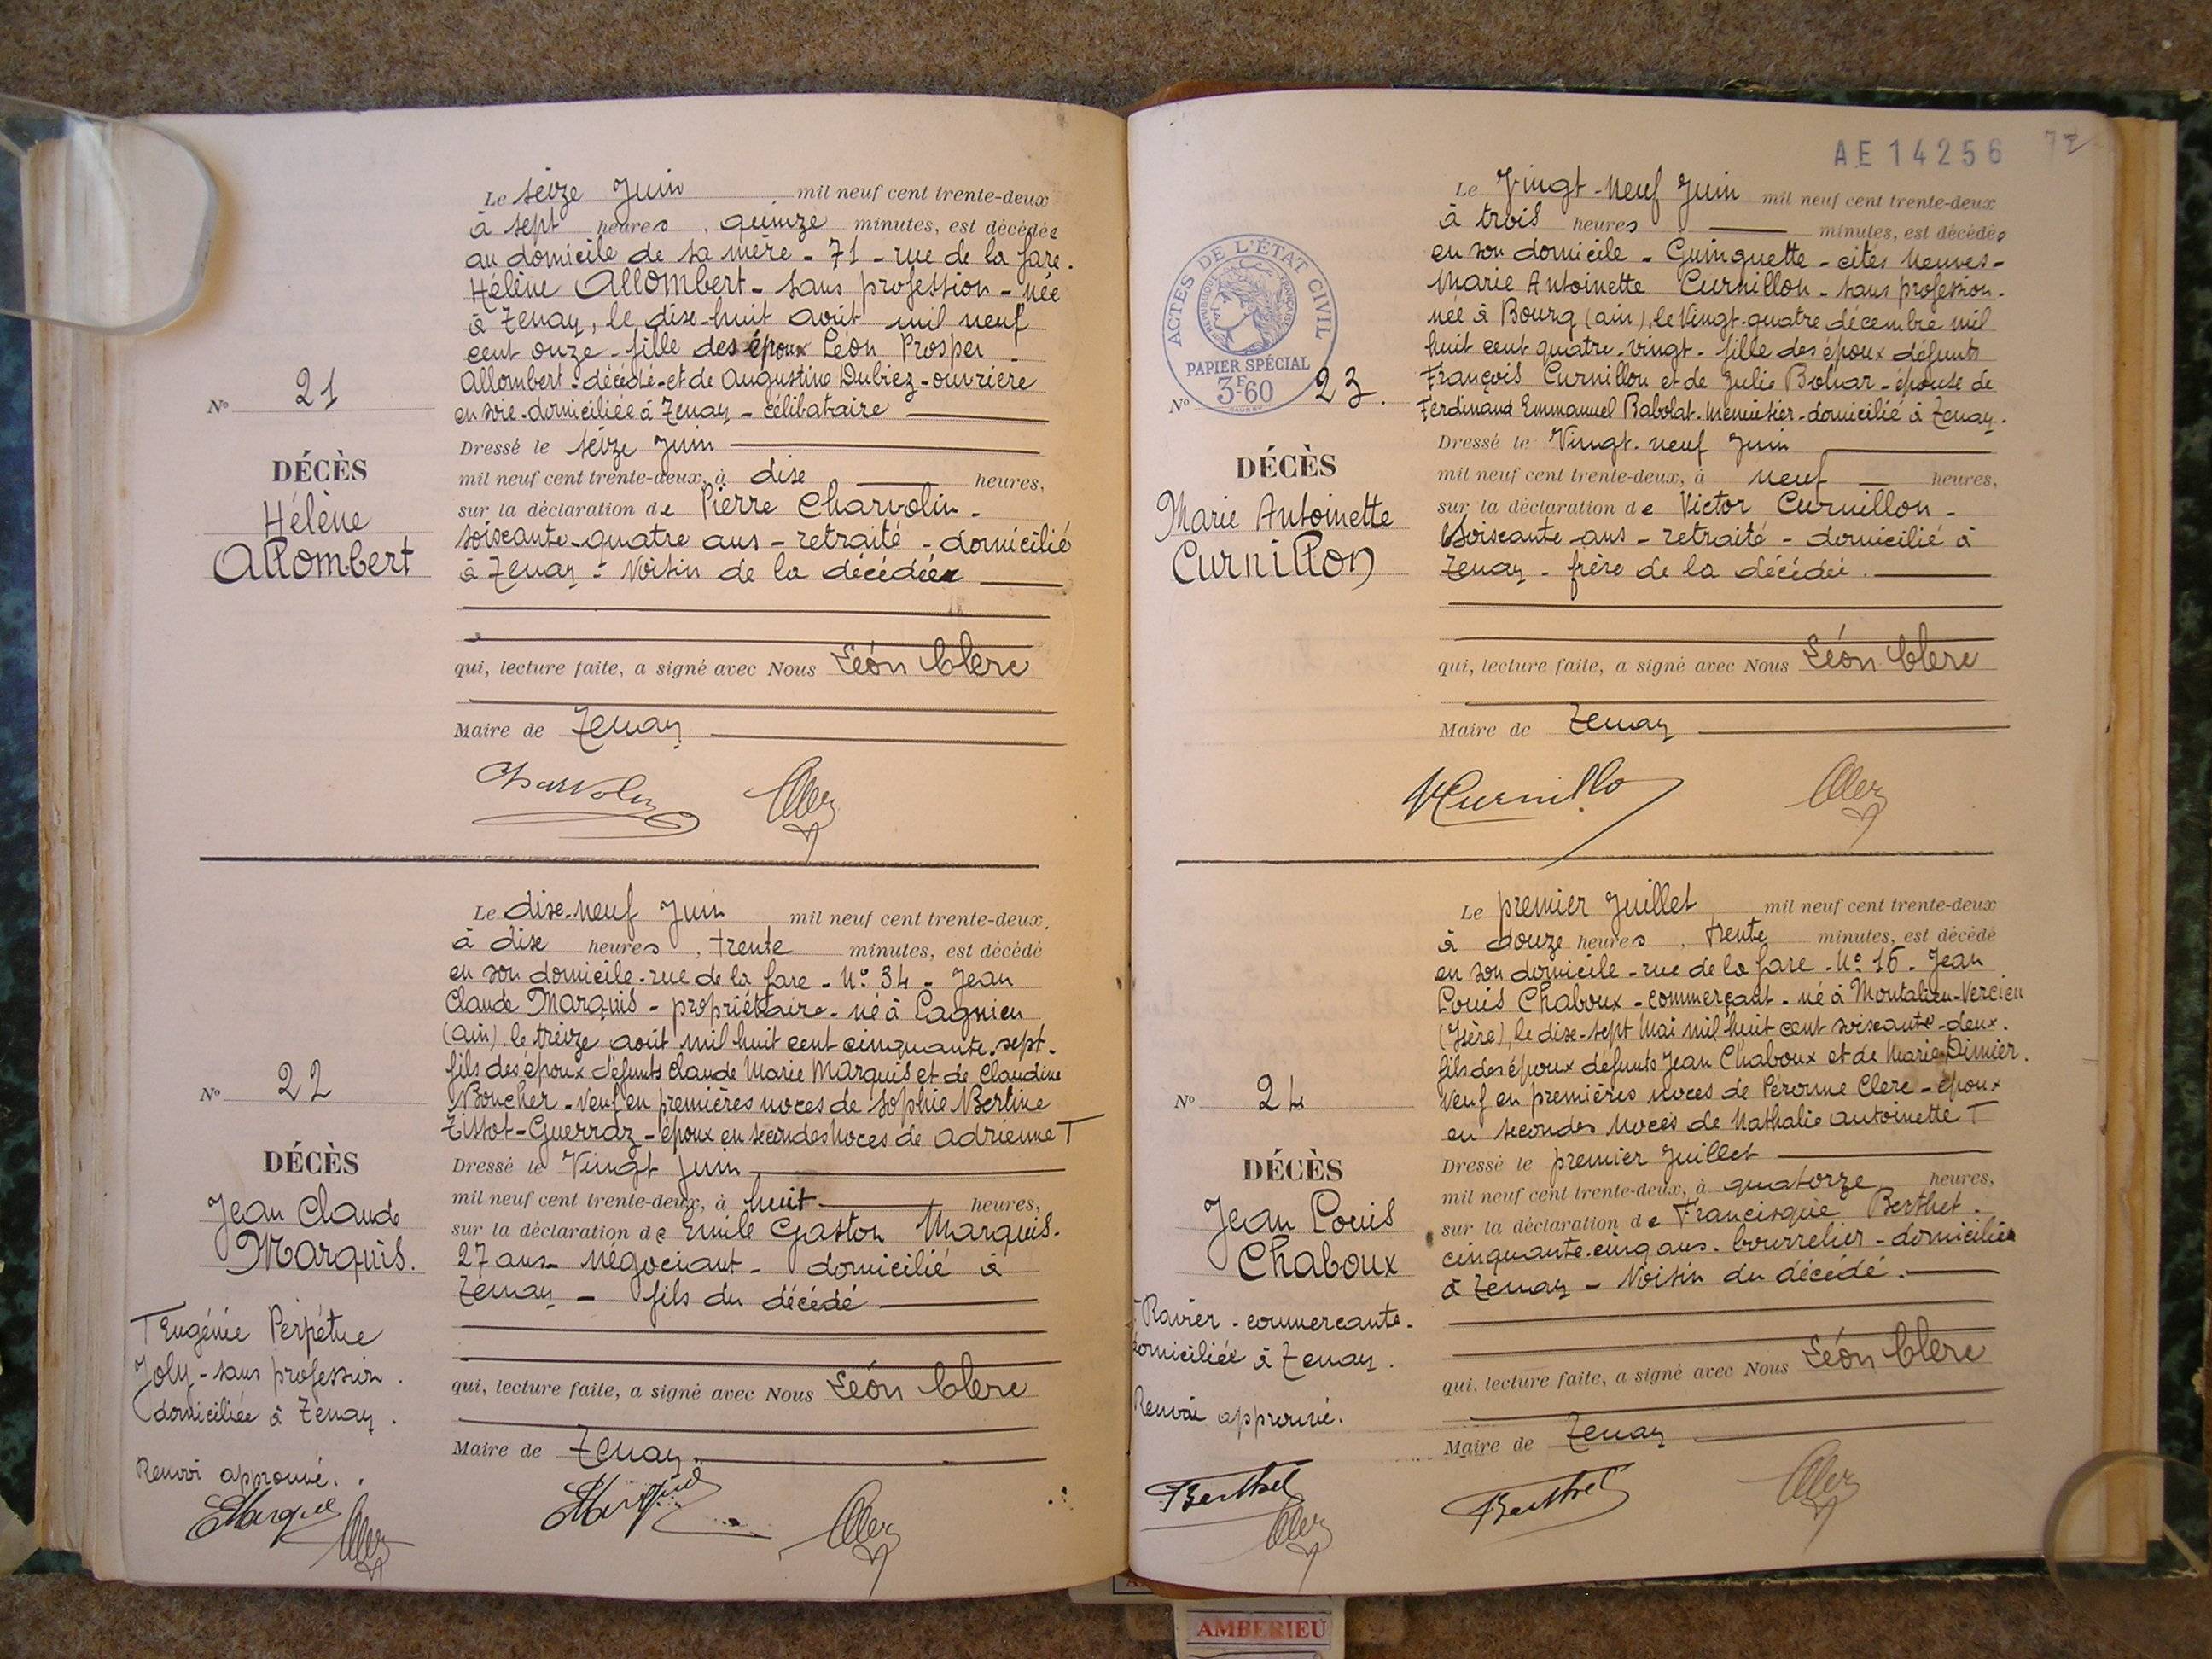 Le seize Juin mil neuf cent trente-deux
à sept heures, quinze minutes, est décédée
au domicile de sa mère - 71 - rue de la gare.
Hélène Allombert - sans profession - née
à Tenay, le dix-huit août mil neuf
cent onze - fille des époux Léon Prosper
Allombert - décédé - et de Augustine Dubiez - ouvrière
en soie - domiciliée à Tenay - célibataire
Nº 21
DÉCÈS
Hélène
Allombert
Dressé le seize Juin
mil neuf cent trente-deux, à dix heures,
sur la déclaration de Pierre Charvolin -
soixante-quatre ans - retraité - domicilié
à Tenay - Voisin de la décédée
qui, lecture faite, a signé avec Nous Léon Clerc
Maire de Tenay
Charvolin
Le dix-neuf Juin mil neuf cent trente-deux,
à dix heures, trente minutes, est décédé
en son domicile - rue de la gare - Nº 34 - Jean
Claude Marquis - propriétaire - né à Lagnieu
(ain), le treize août mil huit cent cinquante-sept -
fils des époux défunts Claude Marie Marquis et de Claudine
Boucher - Veuf en premières noces de Sophie Bertine
Tissot-Guerraz - époux en secondes noces de Adrienne T
Nº 22
DÉCÈS
Jean Claude
Marquis.
Dressé le Vingt Juin
mil neuf cent trente-deux, à huit heures,
sur la déclaration de Emile Gaston Marquis -
27 ans - Négociant - domicilié à
Tenay - fils du décédé
T Eugénie Perpétue
Joly - sans profession.
domiciliée à Tenay.
Renvoi approuvé.
qui, lecture faite, a signé avec Nous Léon Clerc
Maire de Tenay
EMarquis
EMarquis
AE 14256
72
Le Vingt-neuf Juin mil neuf cent trente-deux
à trois heures minutes, est décédée
en son domicile - Guinguette - cités neuves -
Marie Antoinette Curnillon - sans profession -
née à Bourg (ain), le Vingt-quatre décembre mil
huit cent quatre-vingt - fille des époux défunts
François Curnillon et de Julie - épouse de
Ferdinand Emmanuel Babolat - menuisier - domicilié à Tenay.
ACTES DE L'ÉTAT CIVIL
RÉPUBLIQUE FRANÇAISE
PAPIER SPÉCIAL
3F60
Nº 23.
DÉCÈS
Marie Antoinette
Curnillon
Dressé le Vingt-neuf Juin
mil neuf cent trente-deux, à neuf heures,
sur la déclaration de Victor Curnillon -
Soixante ans - retraité - domicilié à
Tenay - frère de la décédée.
qui, lecture faite, a signé avec Nous Léon Clerc
Maire de Tenay
VCurnillo
Le premier Juillet mil neuf cent trente-deux
à douze heures, trente minutes, est décédé
en son domicile - rue de la gare - Nº 16 - Jean
Louis Chaboux - commerçant - né à Montalieu-Vercieu
(Isère), le dix-sept Mai mil huit cent soixante-deux.
fils des époux défunts Jean Chaboux et de Marie Dimier.
Veuf en premières noces de Péronne Clerc - époux
en secondes noces de Nathalie Antoinette T
Nº 24
DÉCÈS
Jean Louis
Chaboux
Dressé le premier Juillet
mil neuf cent trente-deux, à quatorze heures,
sur la déclaration de Francisque Berthet.
cinquante-cinq ans - bourrelier - domicilié
à Tenay - Voisin du décédé.
T Ravier - commerçante -
domiciliée à Tenay.
Renvoi approuvé.
qui, lecture faite, a signé avec Nous Léon Clerc
Maire de Tenay
Berthet
Berthet
AMBERIEU